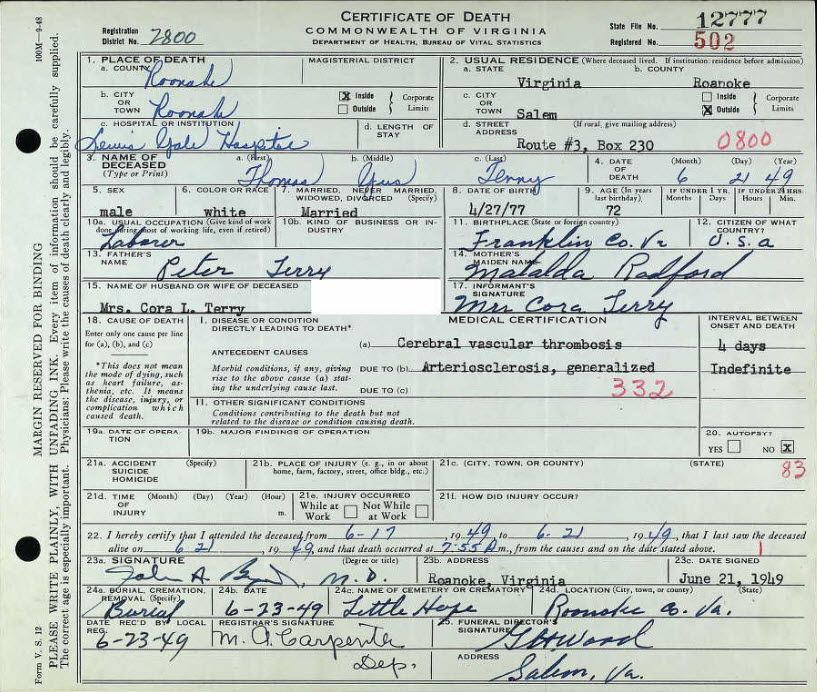 CERTIFICATE OF DEATH
COMMONWEALTH OF VIRGINIA
DEPARTMENT OF HEALTH, BUREAU OF VITAL STATISTICS
Registration District No. 2800
State File No. 12777
Registered No. 502
100M—9-48
MARGIN RESERVED FOR BINDING
PLEASE WRITE PLAINLY, WITH UNFADING INK. Every item of information should be carefully supplied.
The correct age is especially important. Physicians: Please write the causes of death clearly and legibly.
Form V. S. 12
1. PLACE OF DEATH
a. COUNTY Roanoke
MAGISTERIAL DISTRICT
b. CITY OR TOWN Roanoke
☒ Inside ☐ Outside Corporate Limits
c. HOSPITAL OR INSTITUTION Lewis Gale Hospital
d. LENGTH OF STAY
2. USUAL RESIDENCE (Where deceased lived. If institution: residence before admission)
a. STATE Virginia
b. COUNTY Roanoke
c. CITY OR TOWN Salem
☐ Inside ☒ Outside Corporate Limits
d. STREET ADDRESS (If rural, give mailing address)
Route #3, Box 230
0800
3. NAME OF DECEASED (Type or Print)
a. (First) Thomas b. (Middle) Gus c. (Last) Terry
4. DATE OF DEATH (Month) (Day) (Year)
6 21 49
5. SEX male
6. COLOR OR RACE white
7. MARRIED, NEVER MARRIED, WIDOWED, DIVORCED (Specify) Married
8. DATE OF BIRTH 4/27/77
9. AGE (In years last birthday) 72
IF UNDER 1 YR. Months Days
IF UNDER 24 HRS. Hours Min.
10a. USUAL OCCUPATION (Give kind of work done during most of working life, even if retired) Laborer
10b. KIND OF BUSINESS OR INDUSTRY
11. BIRTHPLACE (State or foreign country) Franklin Co. Va
12. CITIZEN OF WHAT COUNTRY? U.S.a
13. FATHER'S NAME Peter Terry
14. MOTHER'S MAIDEN NAME Matalda Radford
15. NAME OF HUSBAND OR WIFE OF DECEASED
Mrs. Cora L. Terry
17. INFORMANT'S SIGNATURE Mrs Cora Terry
18. CAUSE OF DEATH
Enter only one cause per line for (a), (b), and (c)
*This does not mean the mode of dying, such as heart failure, asthenia, etc. It means the disease, injury, or complication which caused death.
I. DISEASE OR CONDITION DIRECTLY LEADING TO DEATH*
MEDICAL CERTIFICATION
INTERVAL BETWEEN ONSET AND DEATH
(a) Cerebral vascular thrombosis 4 days
ANTECEDENT CAUSES
Morbid conditions, if any, giving rise to the above cause (a) stating the underlying cause last.
DUE TO (b) Arteriosclerosis, generalized Indefinite
DUE TO (c)
332
II. OTHER SIGNIFICANT CONDITIONS
Conditions contributing to the death but not related to the disease or condition causing death.
19a. DATE OF OPERATION
19b. MAJOR FINDINGS OF OPERATION
20. AUTOPSY?
YES ☐ NO ☒
21a. ACCIDENT SUICIDE HOMICIDE (Specify)
21b. PLACE OF INJURY (e. g., in or about home, farm, factory, street, office bldg., etc.)
21c. (CITY, TOWN, OR COUNTY) (STATE)
83
21d. TIME OF INJURY (Month) (Day) (Year) (Hour) m.
21e. INJURY OCCURRED
While at Work ☐ Not While at Work ☐
21f. HOW DID INJURY OCCUR?
22. I hereby certify that I attended the deceased from 6-17, 1949 to 6-21, 1949, that I last saw the deceased
alive on 6 21, 1949, and that death occurred at 7:55 A m., from the causes and on the date stated above.
1
23a. SIGNATURE (Degree or title)
John A. M.D.
23b. ADDRESS Roanoke, Virginia
23c. DATE SIGNED June 21, 1949
24a. BURIAL, CREMATION, REMOVAL (Specify) Burial
24b. DATE 6-23-49
24c. NAME OF CEMETERY OR CREMATORY Little Hope
24d. LOCATION (City, town, or county) (State) Roanoke Co. Va.
DATE REC'D BY LOCAL REG. 6-23-49
REGISTRAR'S SIGNATURE M. A. Carpenter Dep.
25. FUNERAL DIRECTOR'S SIGNATURE G H Wood
ADDRESS Salem, Va.